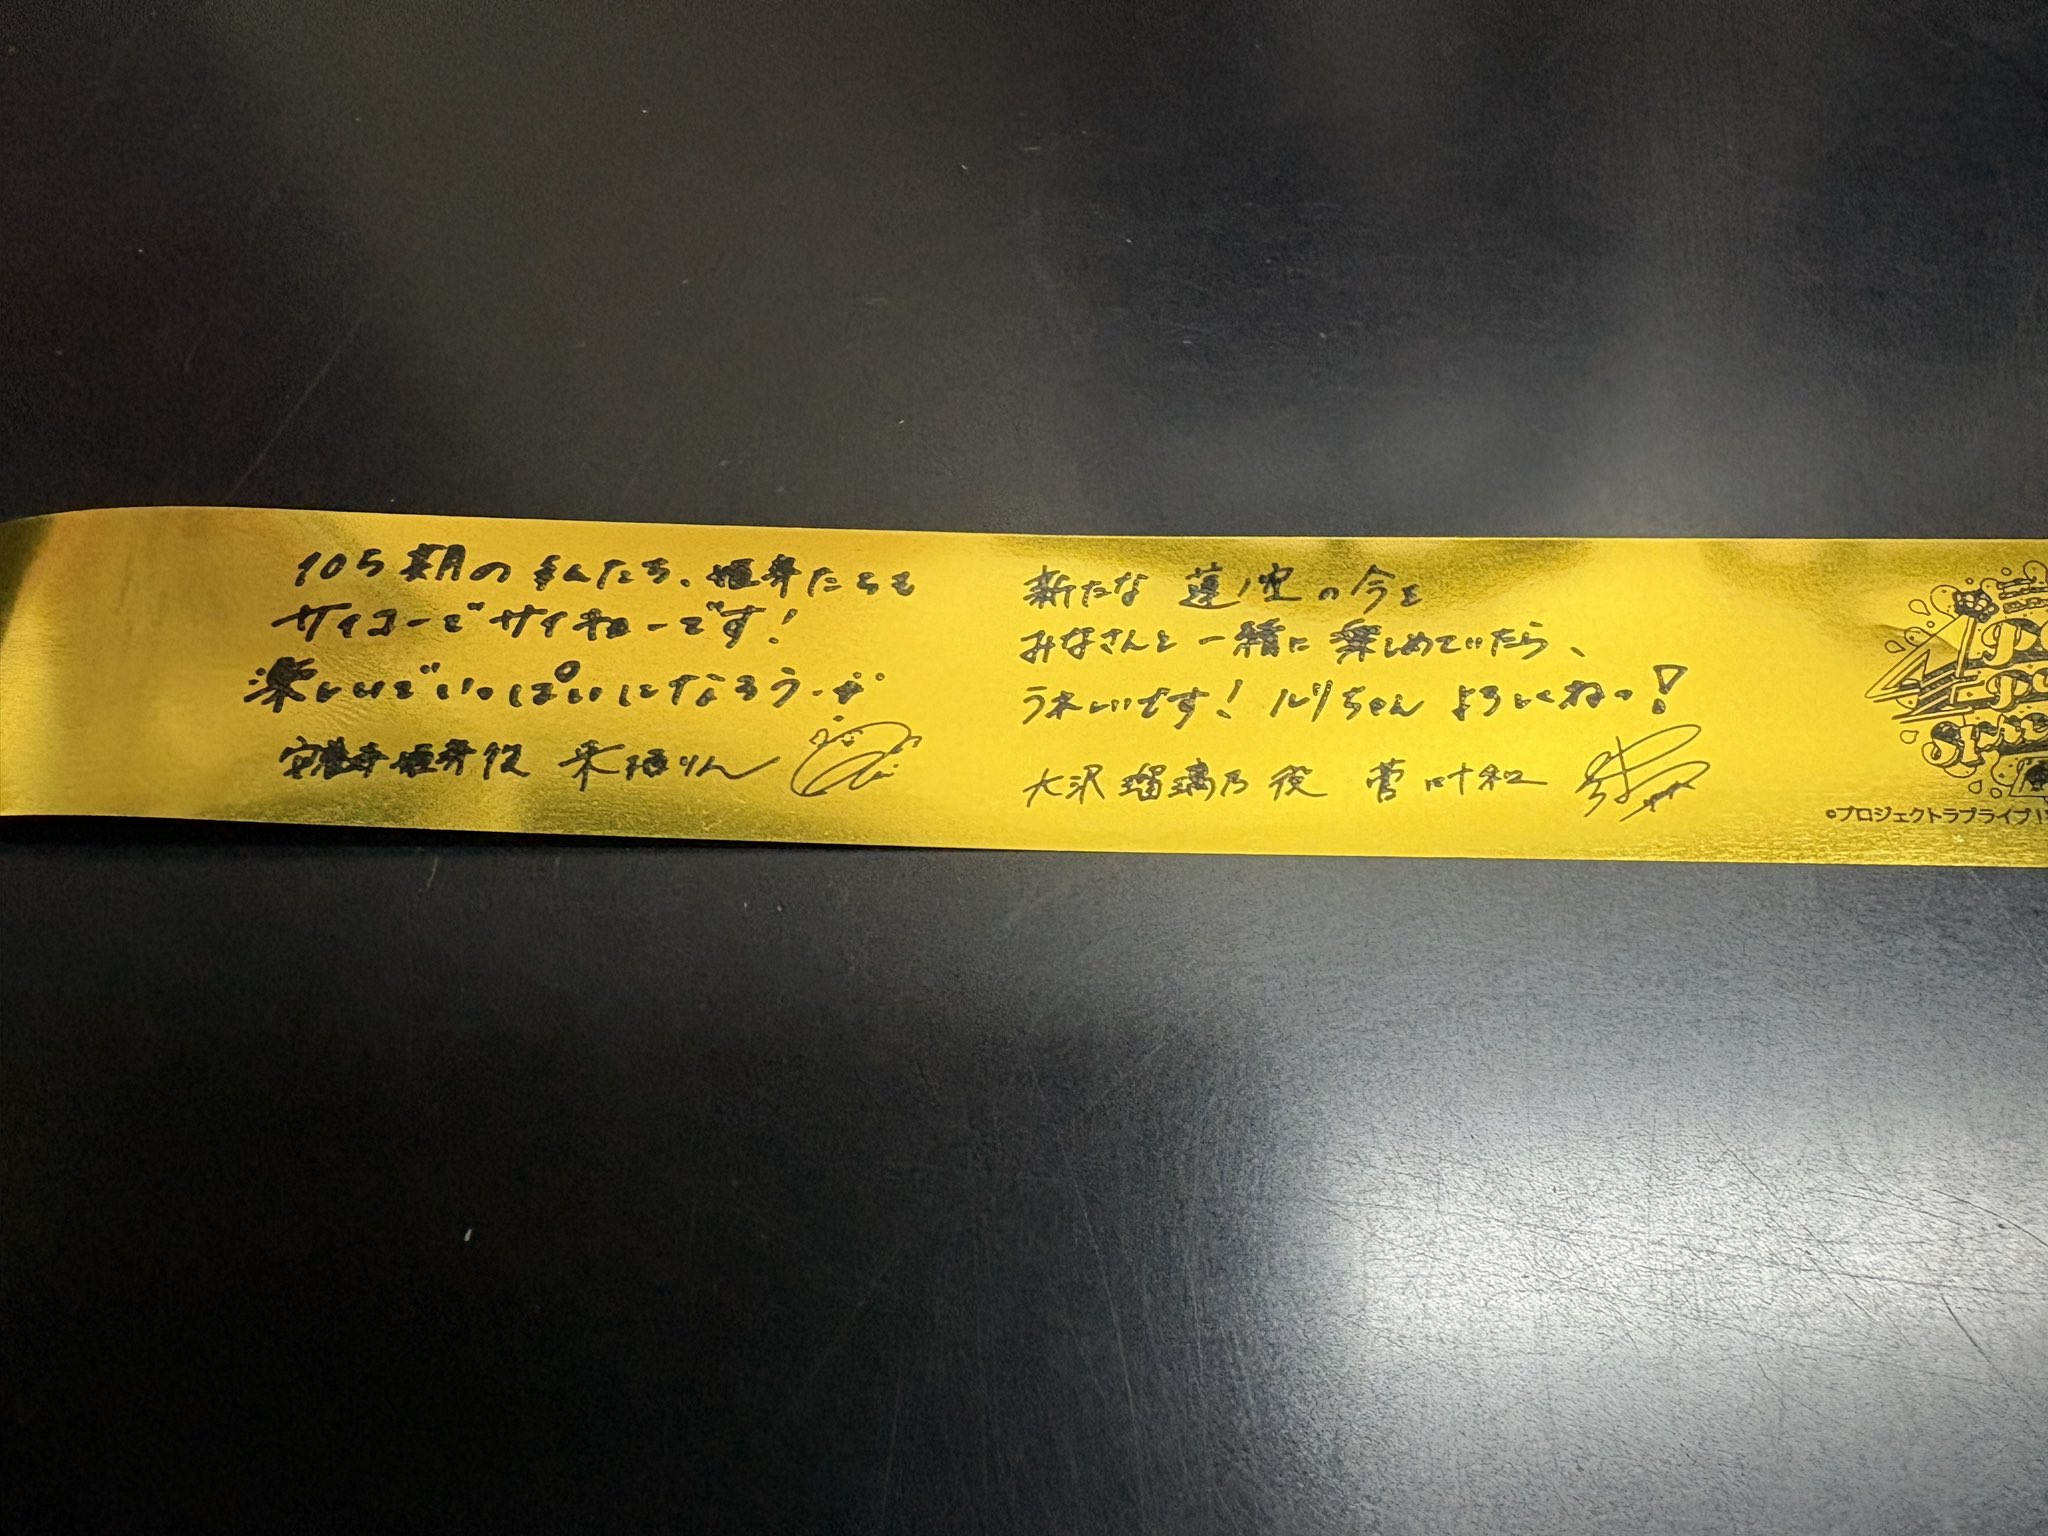 105期の私たち、姫芽たちも
サイコーでサイキョーです!
楽しいでいっぱいになろう
安養寺姫芽役 来栖りん
新たな 蓮ノ空の今を
みなさんと一緒に楽しめていたら、
うれしいです! ルリちゃん よろしくねっ!
大沢瑠璃乃役 菅叶和
©プロジェクトラブライブ!